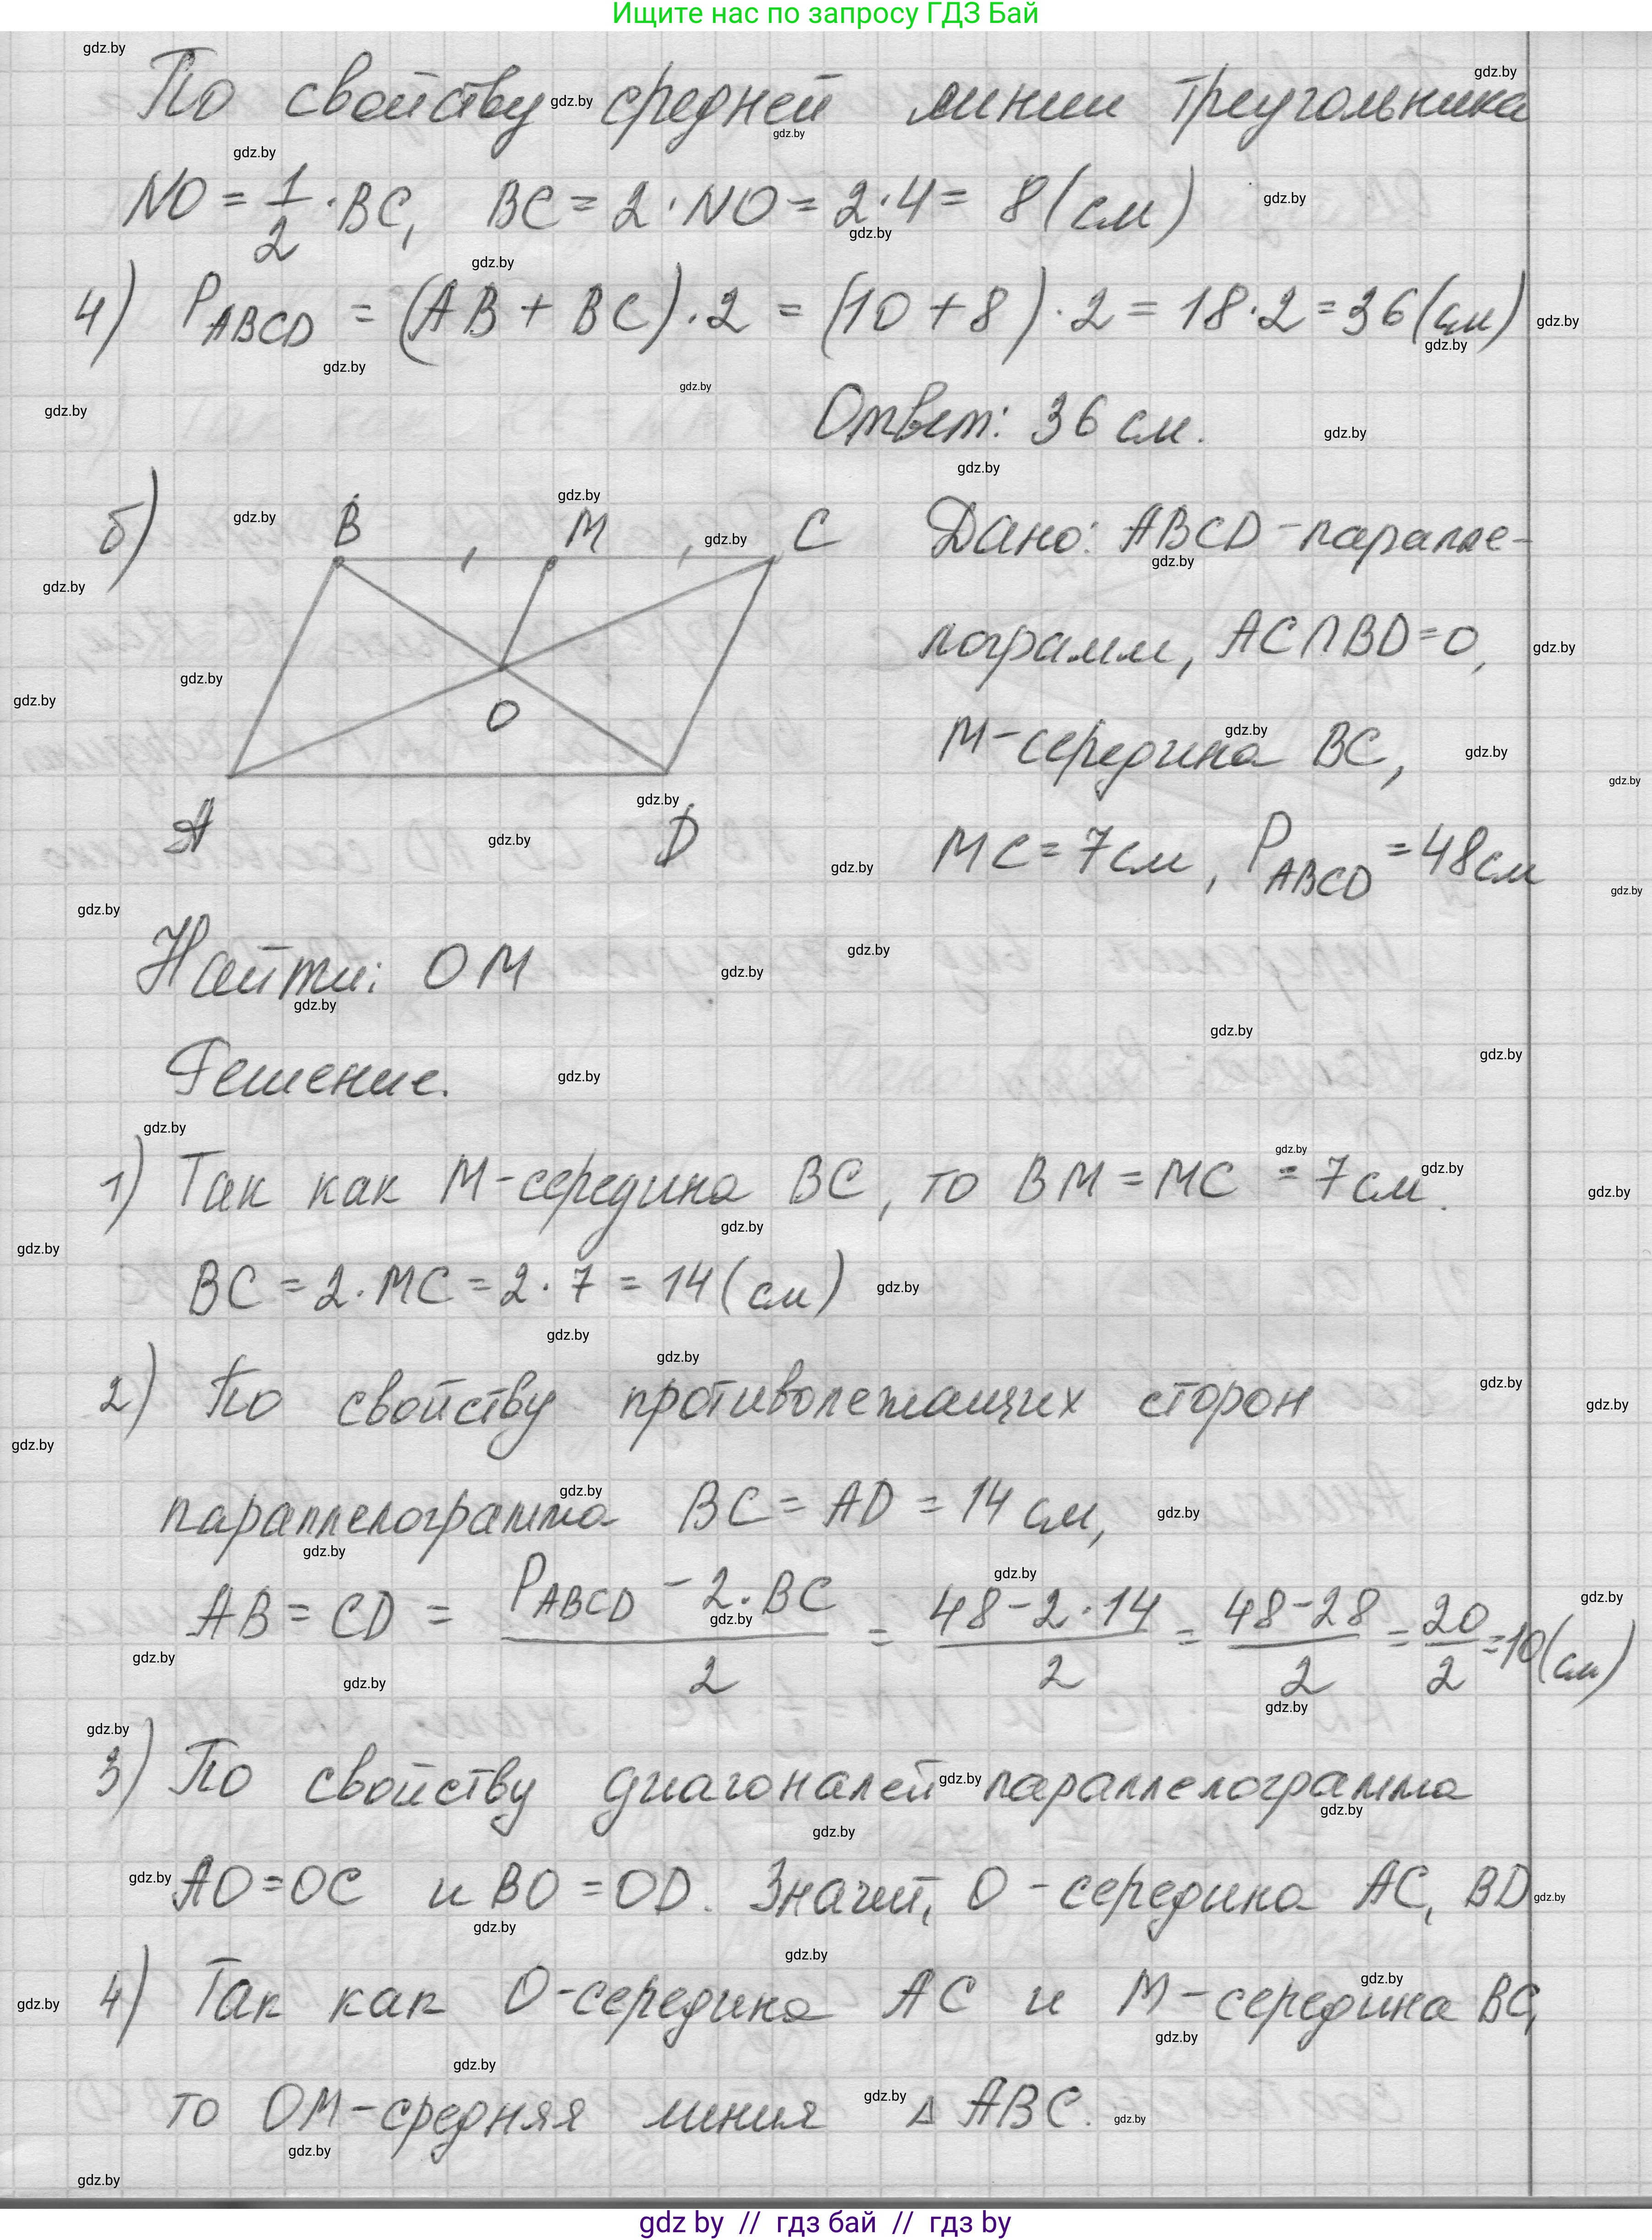 Ищите нас по запросу ГДЗ Бай
По свойству средней линии треугольника
NO = 1/2 · BC, BC = 2 · NO = 2 · 4 = 8 (см)
4) P ABCD = (AB + BC) · 2 = (10 + 8) · 2 = 18 · 2 = 36 (см)
Ответ: 36 см.
б)
B M C
O
A D
Дано: ABCD - паралле-
лограмм, AC∩BD=O,
M - середина BC,
MC = 7 см, P ABCD = 48 см
Найти: OM
Решение.
1) Так как M - середина BC, то BM = MC = 7 см.
BC = 2 · MC = 2 · 7 = 14 (см)
2) По свойству противолежащих сторон
параллелограмма BC = AD = 14 см,
AB = CD = (P ABCD - 2 · BC)/2 = (48 - 2 · 14)/2 = (48 - 28)/2 = 20/2 = 10 (см)
3) По свойству диагоналей параллелограмма
AO = OC и BO = OD. Значит, O - середина AC, BD
4) Так как O - середина AC и M - середина BC,
то OM - средняя линия △ ABC.
gdz by // гдз бай // гдз by